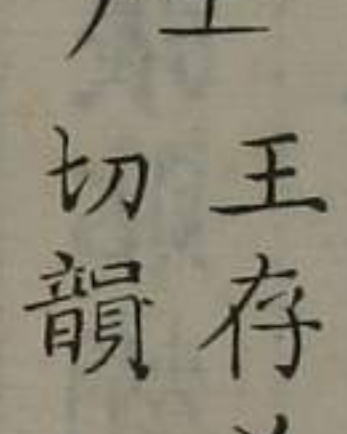 王存
切韻